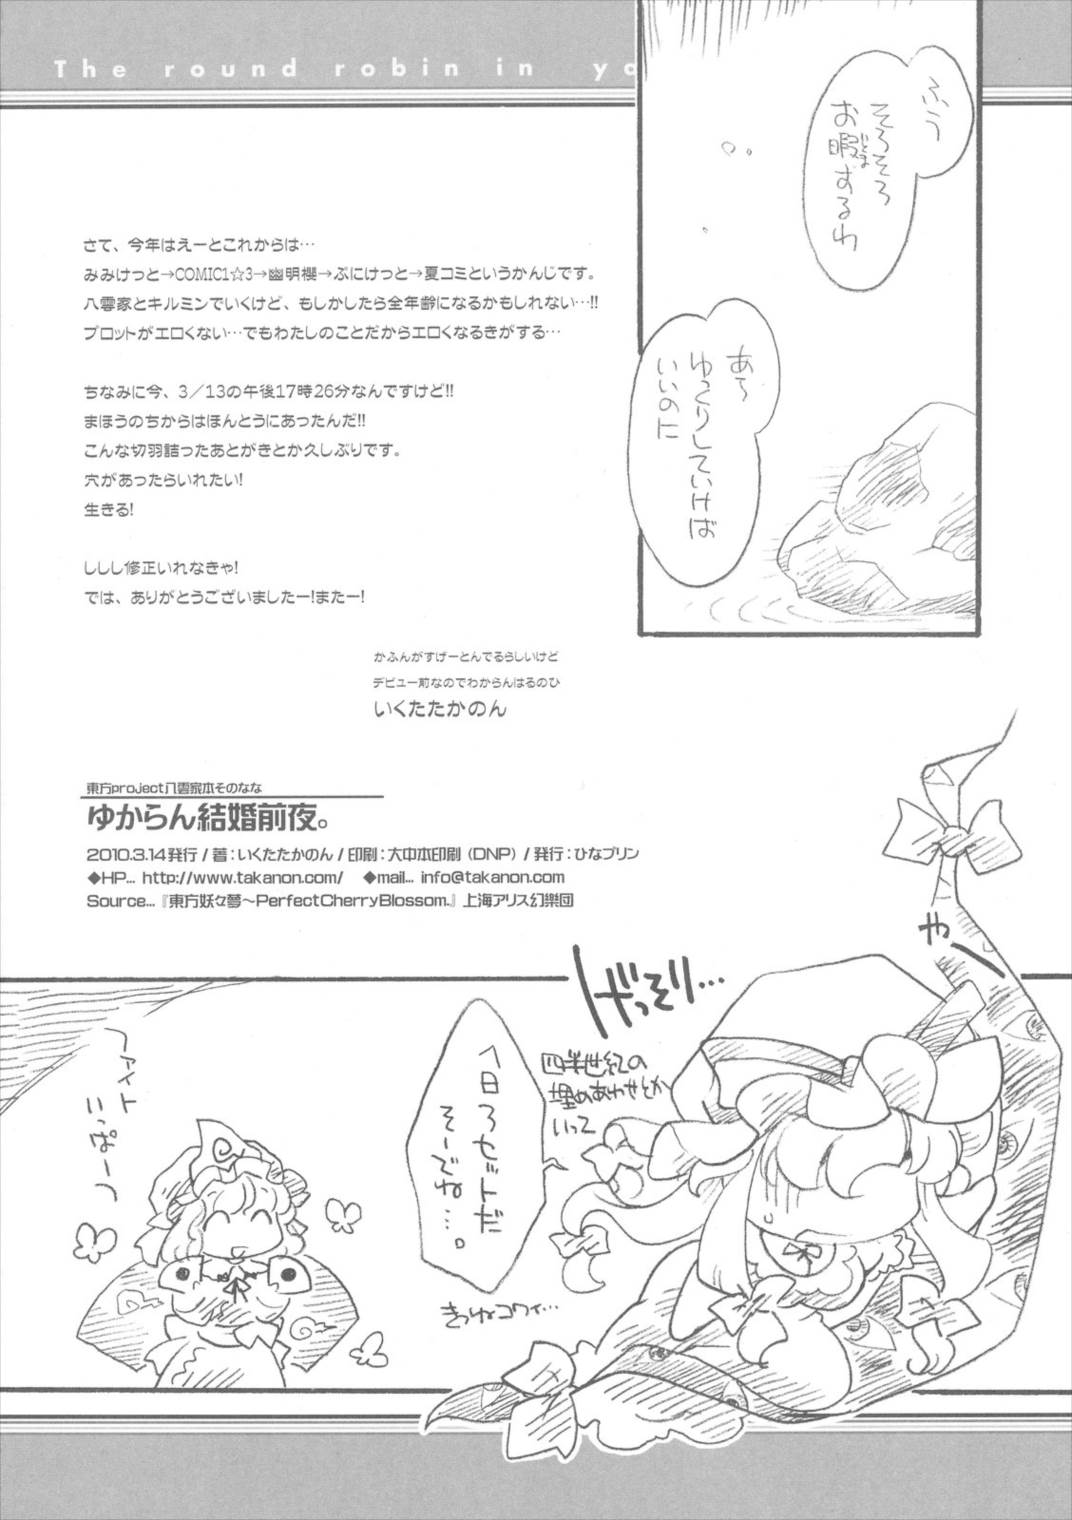 The round robin in ya
ふう
そろそろ
お暇するわ
いとま
あ〜
ゆっくりしていけば
いいのに
さて、今年はえーとこれからは…
みみけっと→COMIC1☆3→幽明櫻→ぷにけっと→夏コミというかんじです。
八雲家とキルミンでいくけど、もしかしたら全年齢になるかもしれない…!!
プロットがエロくない…でもわたしのことだからエロくなるきがする…
ちなみに今、3／13の午後17時26分なんですけど!!
まほうのちからはほんとうにあったんだ!!
こんな切羽詰ったあとがきとか久しぶりです。
穴があったらいれたい!
生きる!
ししし修正いれなきゃ!
では、ありがとうございましたー!またー!
かふんがすげーとんでるらしいけど
デビュー前なのでわからんはるのひ
いくたたかのん
東方project八雲家本そのなな
ゆからん結婚前夜。
2010.3.14発行 / 著：いくたたかのん / 印刷：大中本印刷（DNP） / 発行：ひなプリン
◆HP... http://www.takanon.com/ ◆mail... info@takanon.com
Source...『東方妖々夢〜PerfectCherryBlossom.』上海アリス幻樂団
やつ
げっそり…
四半世紀の
埋めあわせとか
いって
1日3セットだ
そーでね…。
きつねコワイ…
ファイト
いっぱーつ